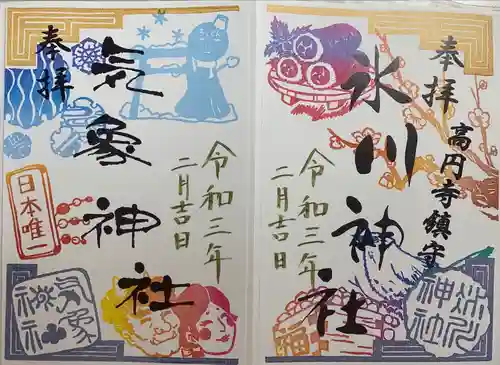 奉拝
高円寺鎮守
氷川神社
令和三年
二月吉日
氷川
神社
福
奉拝
気象神社
令和三年
二月吉日
日本唯一
気象
神社